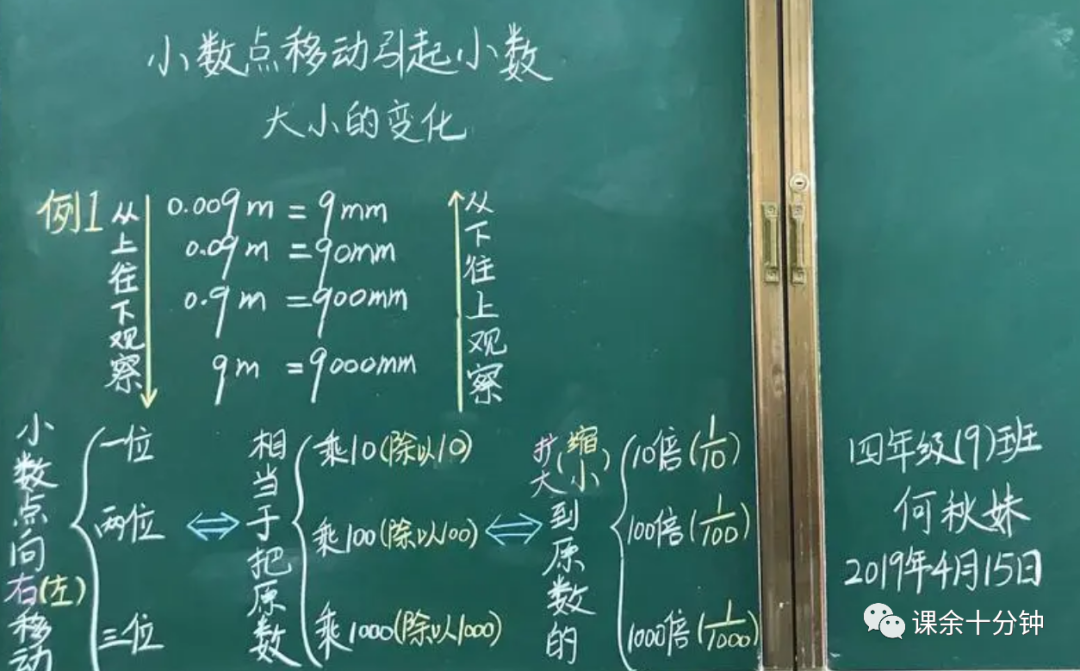 小数点移动引起小数
大小的变化
例1
从上往下观察
0.009m=9mm
0.09m=90mm
0.9m=900mm
9m=9000mm
从下往上观察
小数点向右(左)移动
一位
两位
三位
相当于把原数
乘10(除以10)
乘100(除以100)
乘1000(除以1000)
扩大(缩小)到原数的
10倍(1/10)
100倍(1/100)
1000倍(1/1000)
四年级(9)班
何秋妹
2019年4月15日
课余十分钟